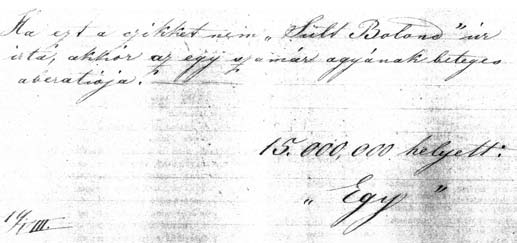 Ha ezt a czikket nem „Sült Bolond” úr
irta, akkor az egy szamár agyának beteges
aberatiója.
15.000,000 helyett:
„Egy”
19/VIII.